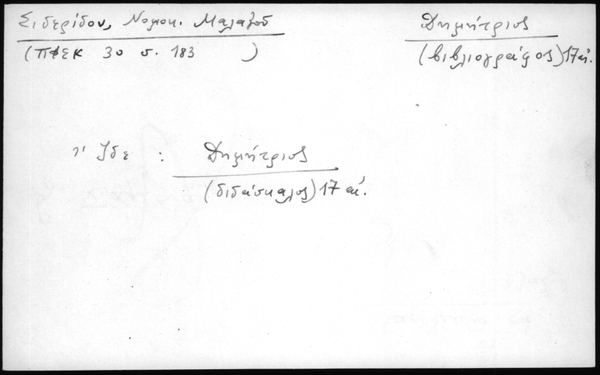 Σιδερίδου, Νομοκ. Μαλαξοῦ
(ΠΦΣΚ 30 σ. 183 )
Δημήτριος
(βιβλιογράφος) 17 αἰ.
Ἰδε : Δημήτριος
(διδάσκαλος) 17 αἰ.